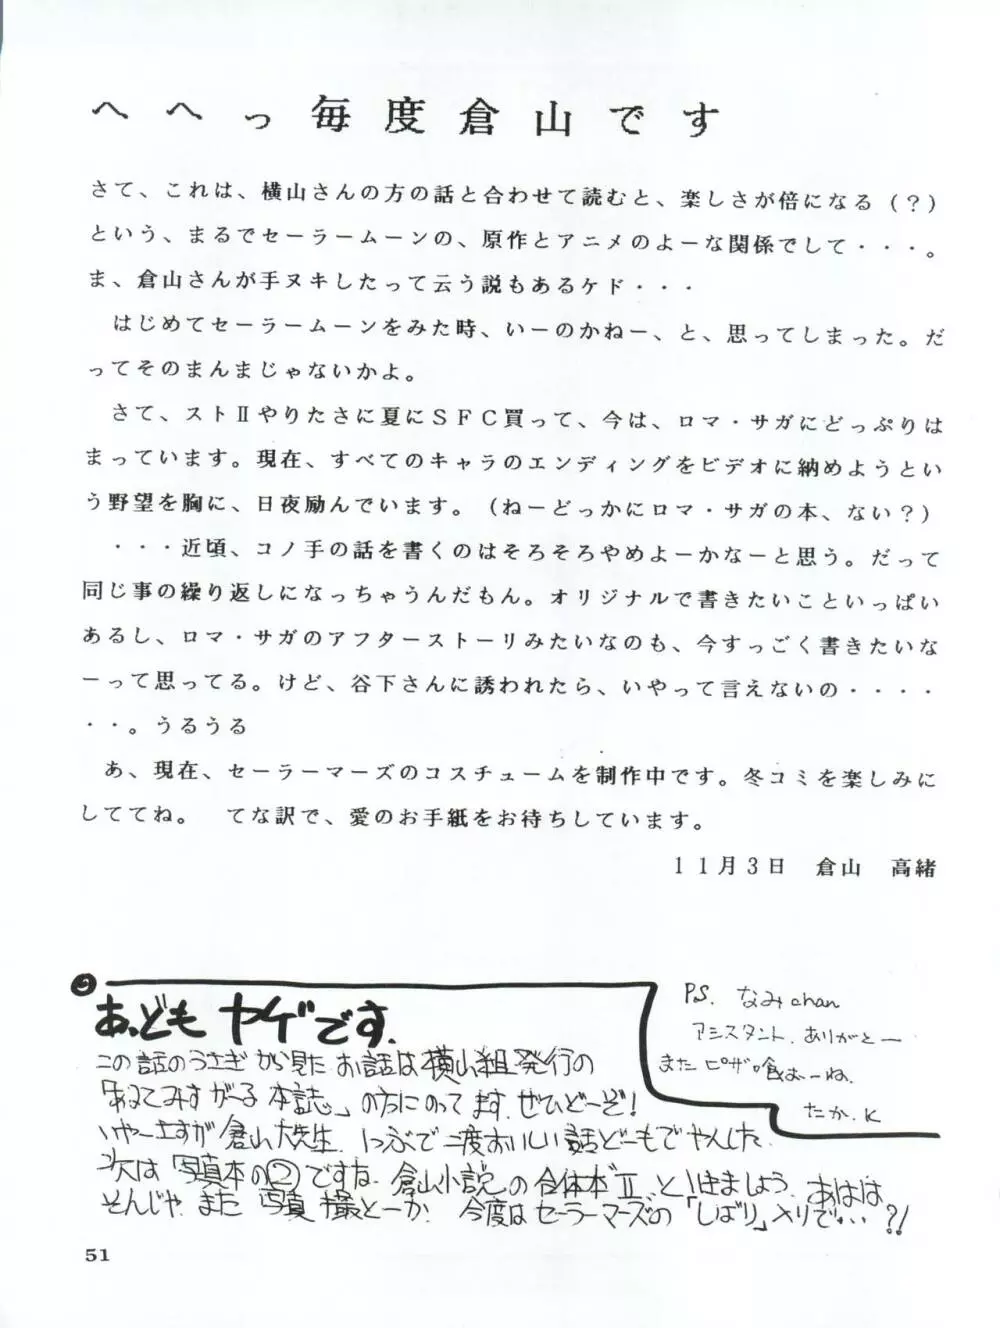 へへっ毎度倉山です
さて、これは、横山さんの方の話と合わせて読むと、楽しさが倍になる（？）
という、まるでセーラームーンの、原作とアニメのよーな関係でして・・・。
ま、倉山さんが手ヌキしたって云う説もあるケド・・・
はじめてセーラームーンをみた時、いーのかねー、と、思ってしまった。だ
ってそのまんまじゃないかよ。
さて、ストⅡやりたさに夏にＳＦＣ買って、今は、ロマ・サガにどっぷりは
まっています。現在、すべてのキャラのエンディングをビデオに納めようとい
う野望を胸に、日夜励んでいます。（ねーどっかにロマ・サガの本、ない？）
・・・近頃、コノ手の話を書くのはそろそろやめよーかなーと思う。だって
同じ事の繰り返しになっちゃうんだもん。オリジナルで書きたいこといっぱい
あるし、ロマ・サガのアフターストーリみたいなのも、今すっごく書きたいな
ーって思ってる。けど、谷下さんに誘われたら、いやって言えないの・・・・
・・。うるうる
あ、現在、セーラーマーズのコスチュームを制作中です。冬コミを楽しみに
しててね。　てな訳で、愛のお手紙をお待ちしています。
１１月３日　倉山　高緒
あ、どもヤゲです.
この話のうさぎから見たお話は横山組発行の
「ねてみすがーる本誌」の方にのってます.ぜひどーぞ!
いやーさすが倉山大先生.1つぶで二度おいしい話どーもでやんした.
次は「写真本の②」ですね.倉山小説の合体本Ⅱ、といきましょう.あはは
そんじゃ.また写真撮とーか.今度はセーラーマーズの「しばり」入りで…?!
P.S. なみchan
アシスタント.ありがとー
またピザ喰おーね.
たか.K
51